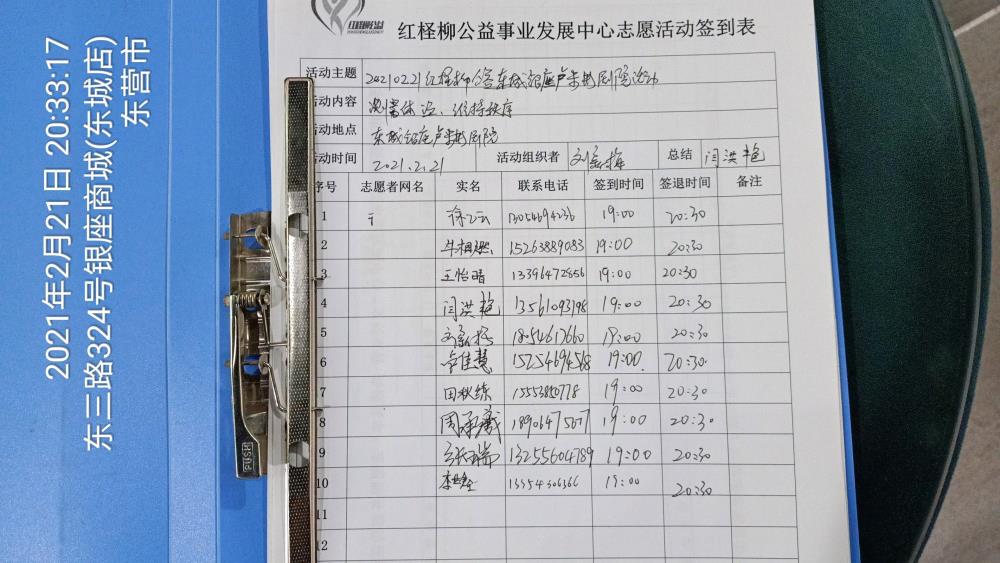 2021年2月21日 20:33:17
东三路324号银座商城(东城店)
东营市
红柽柳公益
红柽柳公益事业发展中心志愿活动签到表
活动主题 20210221红柽柳公益东城银座卢米埃影剧院活动
活动内容 测量体温、维持秩序
活动地点 东城银座卢米埃影剧院
活动时间 2021.2.21 活动组织者 总结 闫洪艳
序号 志愿者网名 实名 联系电话 签到时间 签退时间 备注
1 19:00 20:30
2 15263889083 19:00 20:30
3 王怡晴 13396472856 19:00 20:30
4 闫洪艳 13561093198 19:00 20:30
5 18054617660 19:00 20:30
6 15254694568 19:00 20:30
7 田秋练 19:00 20:30
8 19:00 20:30
9 13255604789 19:00 20:30
10 19:00 20:30
11
12
PUSH